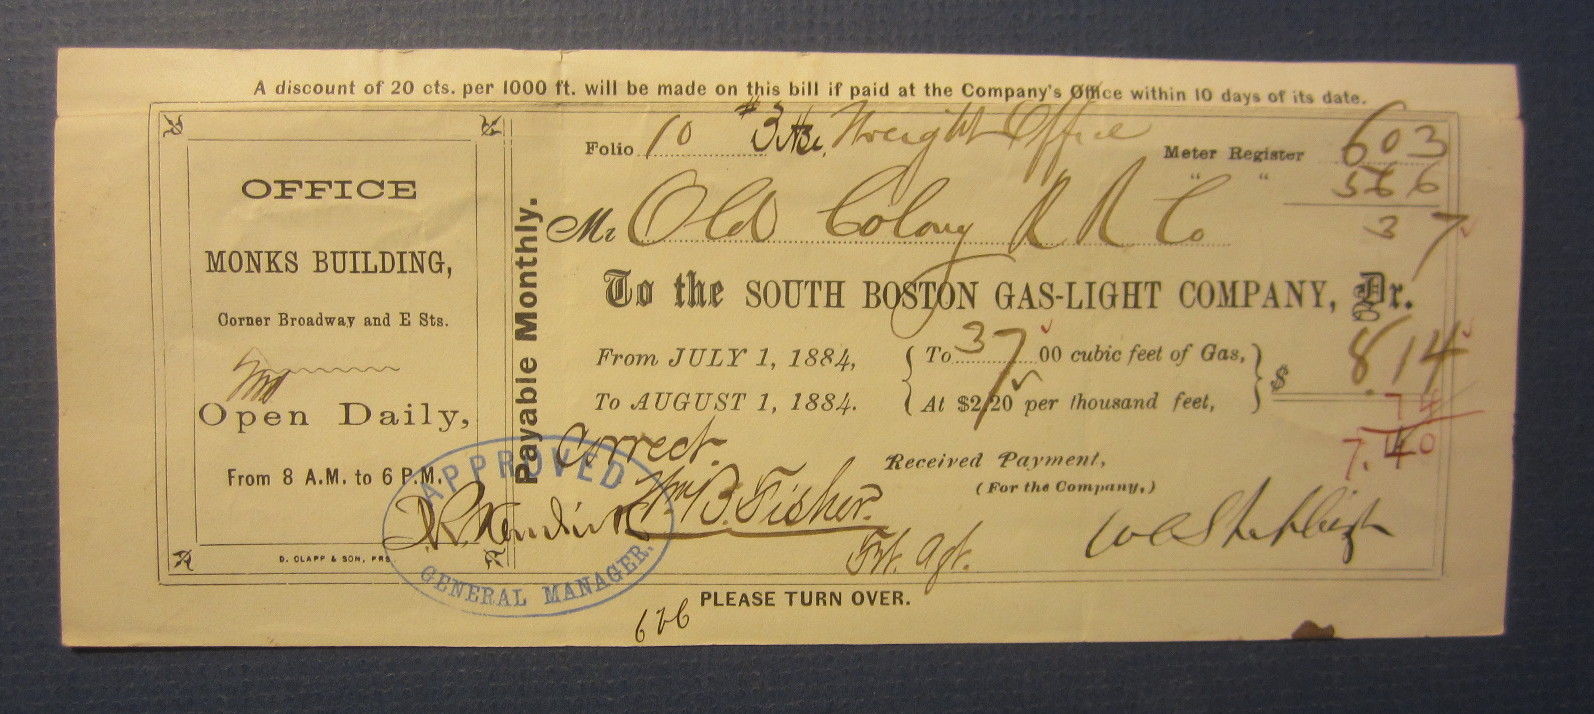 A discount of 20 cts. per 1000 ft. will be made on this bill if paid at the Company's Office within 10 days of its date.
OFFICE
MONKS BUILDING,
Corner Broadway and E Sts.
Open Daily,
From 8 A.M. to 6 P.M.
D. CLAPP & SON, PRS
Payable Monthly.
Folio 10 #3 Freight Office
Meter Register 603
" " 566
37
Mr Old Colony R R Co
To the SOUTH BOSTON GAS-LIGHT COMPANY, Dr.
From JULY 1, 1884, To 37 00 cubic feet of Gas,
To AUGUST 1, 1884. At $2.20 per thousand feet,
$ 8.14
74
7.40
Correct.
Wm B. Fisher.
Frt. Agt.
Received Payment,
(For the Company,)
APPROVED
J. R. Kendrick
GENERAL MANAGER.
626
PLEASE TURN OVER.